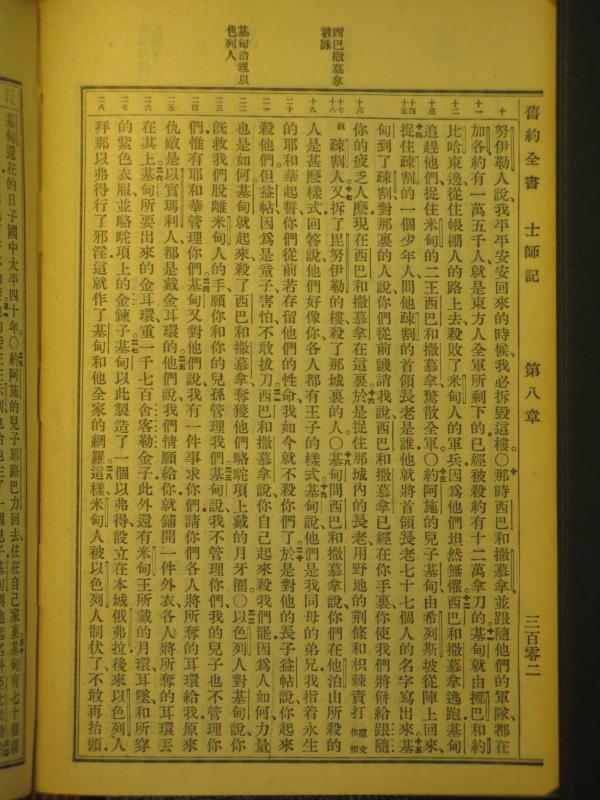 舊約全書 士師記 第八章 三百零二
西巴撒慕拿
被誅
基甸治理以
色列人
十 十一 十二 十三 十四 十五 十六 十七 十八 十九 二十 二一 二二 二三 二四 二五 二六 二七 二八
努伊勒人說、我平平安安回來的時候、我必拆毀這樓。○那時西巴和撒慕拿並跟隨他們的軍隊都在
加各、約有一萬五千人、就是東方人全軍所剩下的、已經被殺約有十二萬拿刀的。基甸就由挪巴和約
比哈東邊、從住帳棚人的路上去、殺敗了米甸人的軍兵、因為他們坦然無懼。西巴和撒慕拿逃跑、基甸
追趕他們、捉住米甸的二王西巴和撒慕拿、驚散全軍。○約阿施的兒子基甸由希列斯坡從陣上回來、
捉住疎割的一個少年人、問他疎割的首領長老是誰、他就將首領長老七十七個人的名字寫出來。基
甸到了疎割、對那裏的人說、你們從前譏誚我說、西巴和撒慕拿已經在你手裏、你使我們將餅給跟隨
你的疲乏人麼、現在西巴和撒慕拿在這裏。於是捉住那城內的長老、用野地的荊條和枳棘責打原文作指教
疎割人、又拆了毘努伊勒的樓、殺了那城裏的人。○基甸問西巴和撒慕拿說、你們在他泊山所殺的
人是甚麼樣式、回答說、他們好像你、各人都有王子的樣式。基甸說、他們是我同母的弟兄、我指着永生
的耶和華起誓、你們從前若存留他們的性命、我如今就不殺你們了。於是對他的長子益帖說、你起來
殺他們、但益帖因為是童子、害怕、不敢拔刀。西巴和撒慕拿說、你自己起來殺我們罷、因為人如何、力量
也是如何。基甸就起來、殺了西巴和撒慕拿、奪獲他們駱駝項上戴的月牙圈。○以色列人對基甸說、你
旣救我們脫離米甸人的手、願你和你的兒孫管理我們。基甸說、我不管理你們、我的兒子也不管理你
們、惟有耶和華管理你們。基甸又對他們說、我有一件事求你們、請你們各人將所奪的耳環給我、原來
仇敵是以實瑪利人、都是戴金耳環的。他們說、我們情願給你、就鋪開一件外衣、各人將所奪的耳環丟
在其上。基甸所要出來的金耳環、重一千七百舍客勒金子、此外還有米甸王所戴的月環、耳墜、和所穿
的紫色衣服、並駱駝項上的金鍊子。基甸以此製造了一個以弗得、設立在本城俄弗拉、後來以色列人
拜那以弗得行了邪淫、這就作了基甸和他全家的網羅。這樣米甸人被以色列人制伏了、不敢再抬頭、
基甸還在的日子、國中太平四十年。○約阿施的兒子耶路巴力回去、住在自己家裏。基甸有七十個